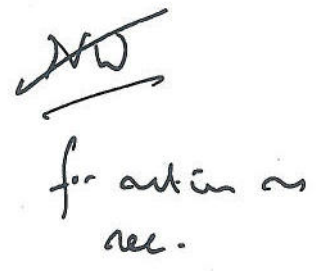 NW
for action as
nec.